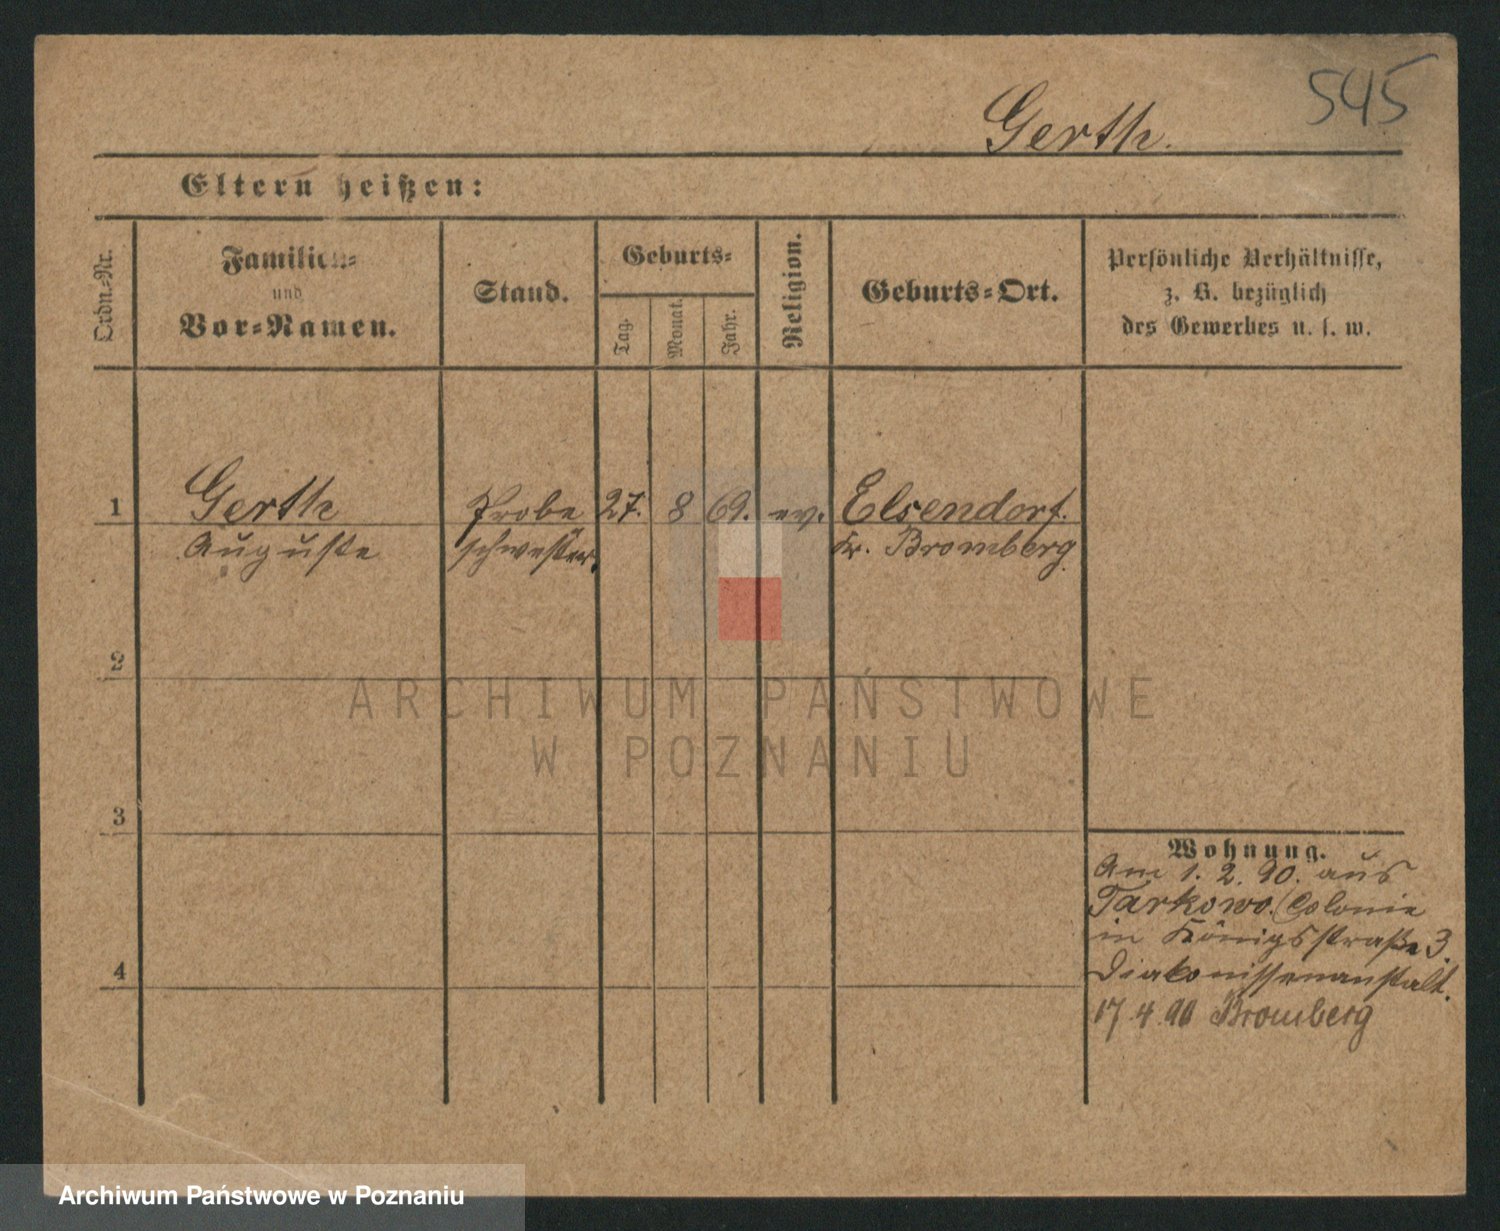 545
Gerth.
Eltern heißen:
Ordn.-Nr.
Familien-
und
Vor-Namen.
Stand.
Geburts-
Tag.
Monat.
Jahr.
Religion.
Geburts-Ort.
Persönliche Verhältnisse,
z. B. bezüglich
des Gewerbes u. s. w.
1 Gerth Probe 27. 8 69. ev. Elsendorf.
Auguste schwester. Kr. Bromberg
2
3
4
Wohnung.
Am 1. 2. 90. aus
Tarkowo. Colonie
in Königsstraße 3.
Diakonissenanstalt.
17.4.90 Bromberg
ARCHIWUM PAŃSTWOWE
W POZNANIU
Archiwum Państwowe w Poznaniu